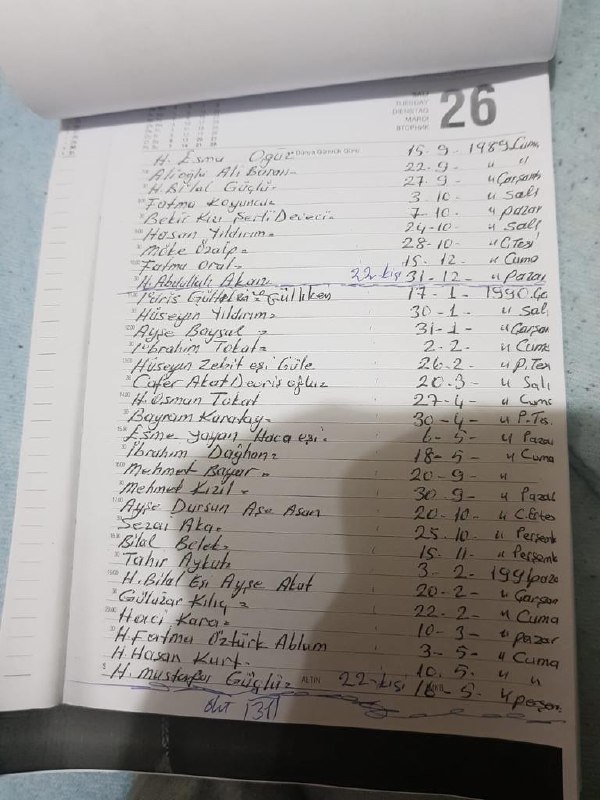 SALI
TUESDAY
DIENSTAG
MARDI
ВТОРНИК
26
H. Esma Oğuz 15-9-1989 Cuma
Alioğlu Ali Buran- 22-9- " "
H. Bilal Güçlü- 27-9- " Çarşamb
Fatma Koyuncu- 3-10- " Salı
Bekir Kızı Şerli Deveci- 7-10- " pazar
Hasan Yıldırım- 24-10- " Salı
Mike Özalp- 28-10- " C.Tesi
Fatma Oral- 15-12- " Cuma
H. Abdullah Akgöz 22-kişi 31-12- " Pazar
Güllüken 17-1-1990 Ça
Hüseyin Yıldırım- 30-1- " Salı
Ayşe Baysal = 31-1- " Çarşam
İbrahim Tokat- 2-2- " Cuma
Hüseyin Zehit eşi Güle 26-2- " P.Tes
Cafer Akat Devriş oğlu- 20-3- " Salı
H. Osman Tokat 27-4- " Cuma
Bayram Karatay- 30-4- " P-Tes.
Esme Yayan Hoca eşi- 6-5- " Pazar
İbrahim Dağhan- 18-5- " Cuma
Mehmet Bayar- 20-9- "
Mehmet Kızıl- 30-9- " Pazal
Ayşe Dursun Aşe Asan 20-10- " C.Ertes
Sezai Aka- 25-10- " Perşemb
Bilal Belek- 15-11- " Perşemb
Tahir Aykut- 3-2-1991 paza
H. Bilal En Ayşe Akat 20-2- " Çarşam
Gülüzar Kılıç = 22-2- " Cuma
Haci Kara- 10-3- " pazar
H Fatma Öztürk Ablam 3-5- " Cuma
H Hasan Kurt- 10-5- " "
H. mustafa Güçlü- 22-kişi 16-5- " perşem
131